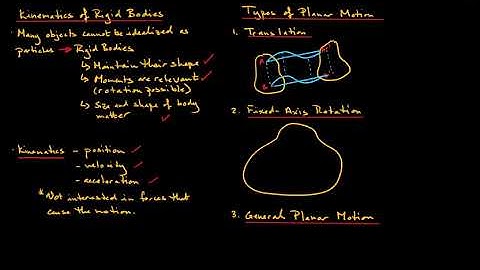 Kinematics of Rigid Bodies
· Many objects cannot be idealized as
particles → Rigid Bodies
↳ Maintain their shape ✓
↳ Moments are relevant ✓
(rotation possible)
↳ Size and shape of body
matter ✓
· Kinematics - position ✓
- velocity ✓
- acceleration ✓
* Not interested in forces that
cause the motion.
Types of Planar Motion
1. Translation
A
B
2. Fixed-Axis Rotation
3. General Planar Motion